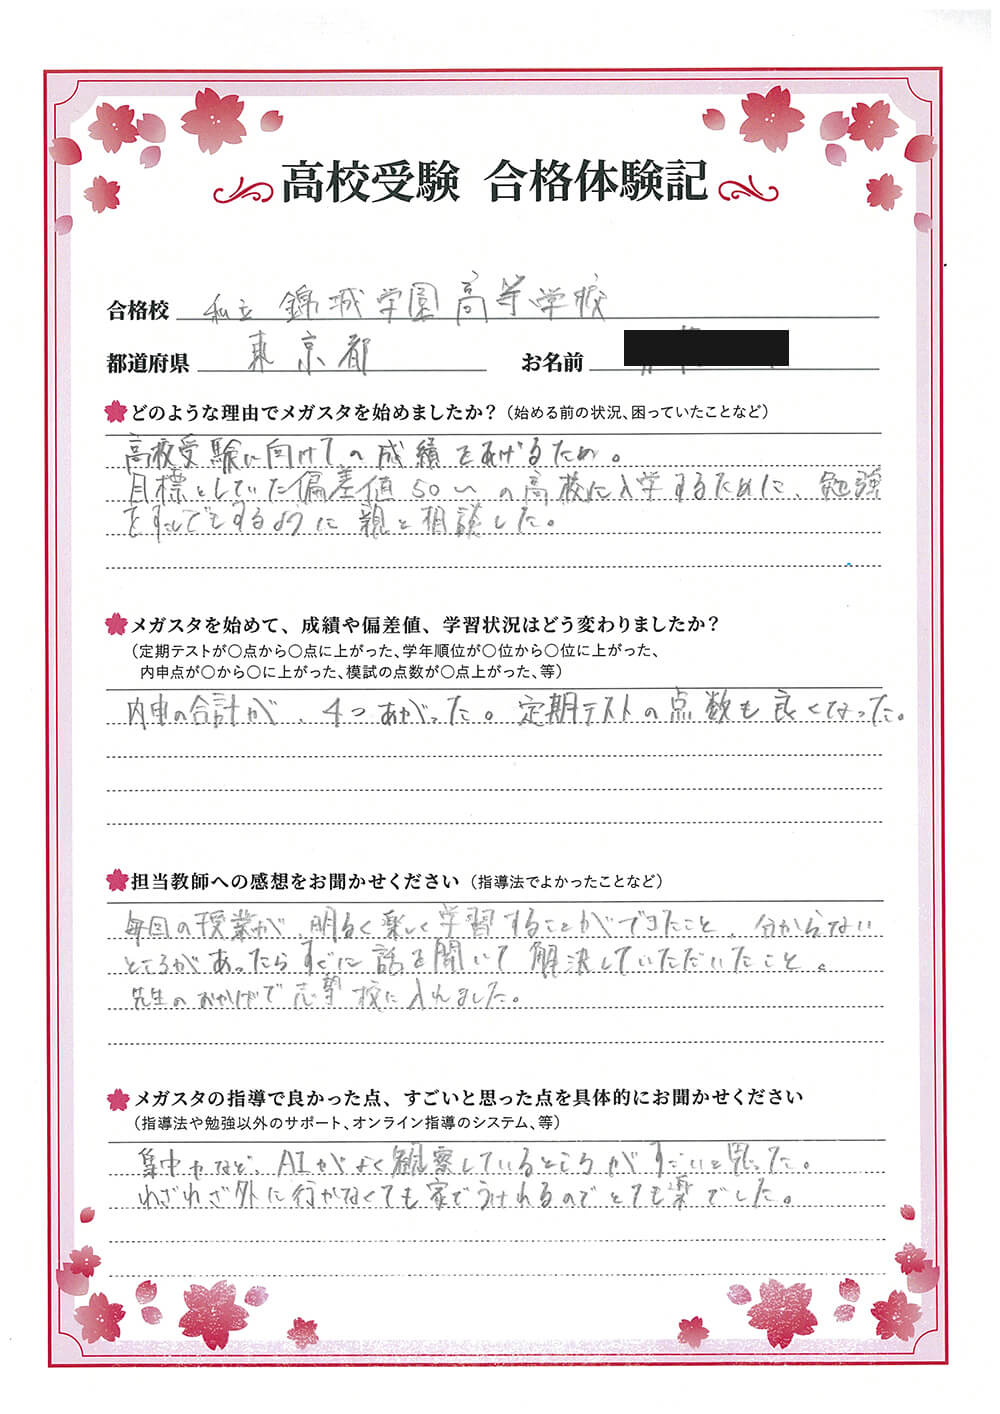 高校受験 合格体験記
合格校 私立 錦城学園高等学校
都道府県 東京都 お名前
どのような理由でメガスタを始めましたか?(始める前の状況、困っていたことなど)
高校受験に向けての成績をあげるため。
目標としていた偏差値50〜の高校に入学するために、勉強
をすこしでもするように親と相談した。
メガスタを始めて、成績や偏差値、学習状況はどう変わりましたか?
(定期テストが〇点から〇点に上がった、学年順位が〇位から〇位に上がった、
内申点が〇から〇に上がった、模試の点数が〇点上がった、等)
内申の合計が、4つあがった。定期テストの点数も良くなった。
担当教師への感想をお聞かせください(指導法でよかったことなど)
毎回の授業が、明るく楽しく学習することができたこと、分からない
ところがあったらすぐに話を聞いて解決していただいたこと。
先生のおかげで志望校に入れました。
メガスタの指導で良かった点、すごいと思った点を具体的にお聞かせください
(指導法や勉強以外のサポート、オンライン指導のシステム、等)
集中力など、AIがよく観察しているところがすごいと思った。
わざわざ外に行かなくても家でうけれるのでとても楽でした。